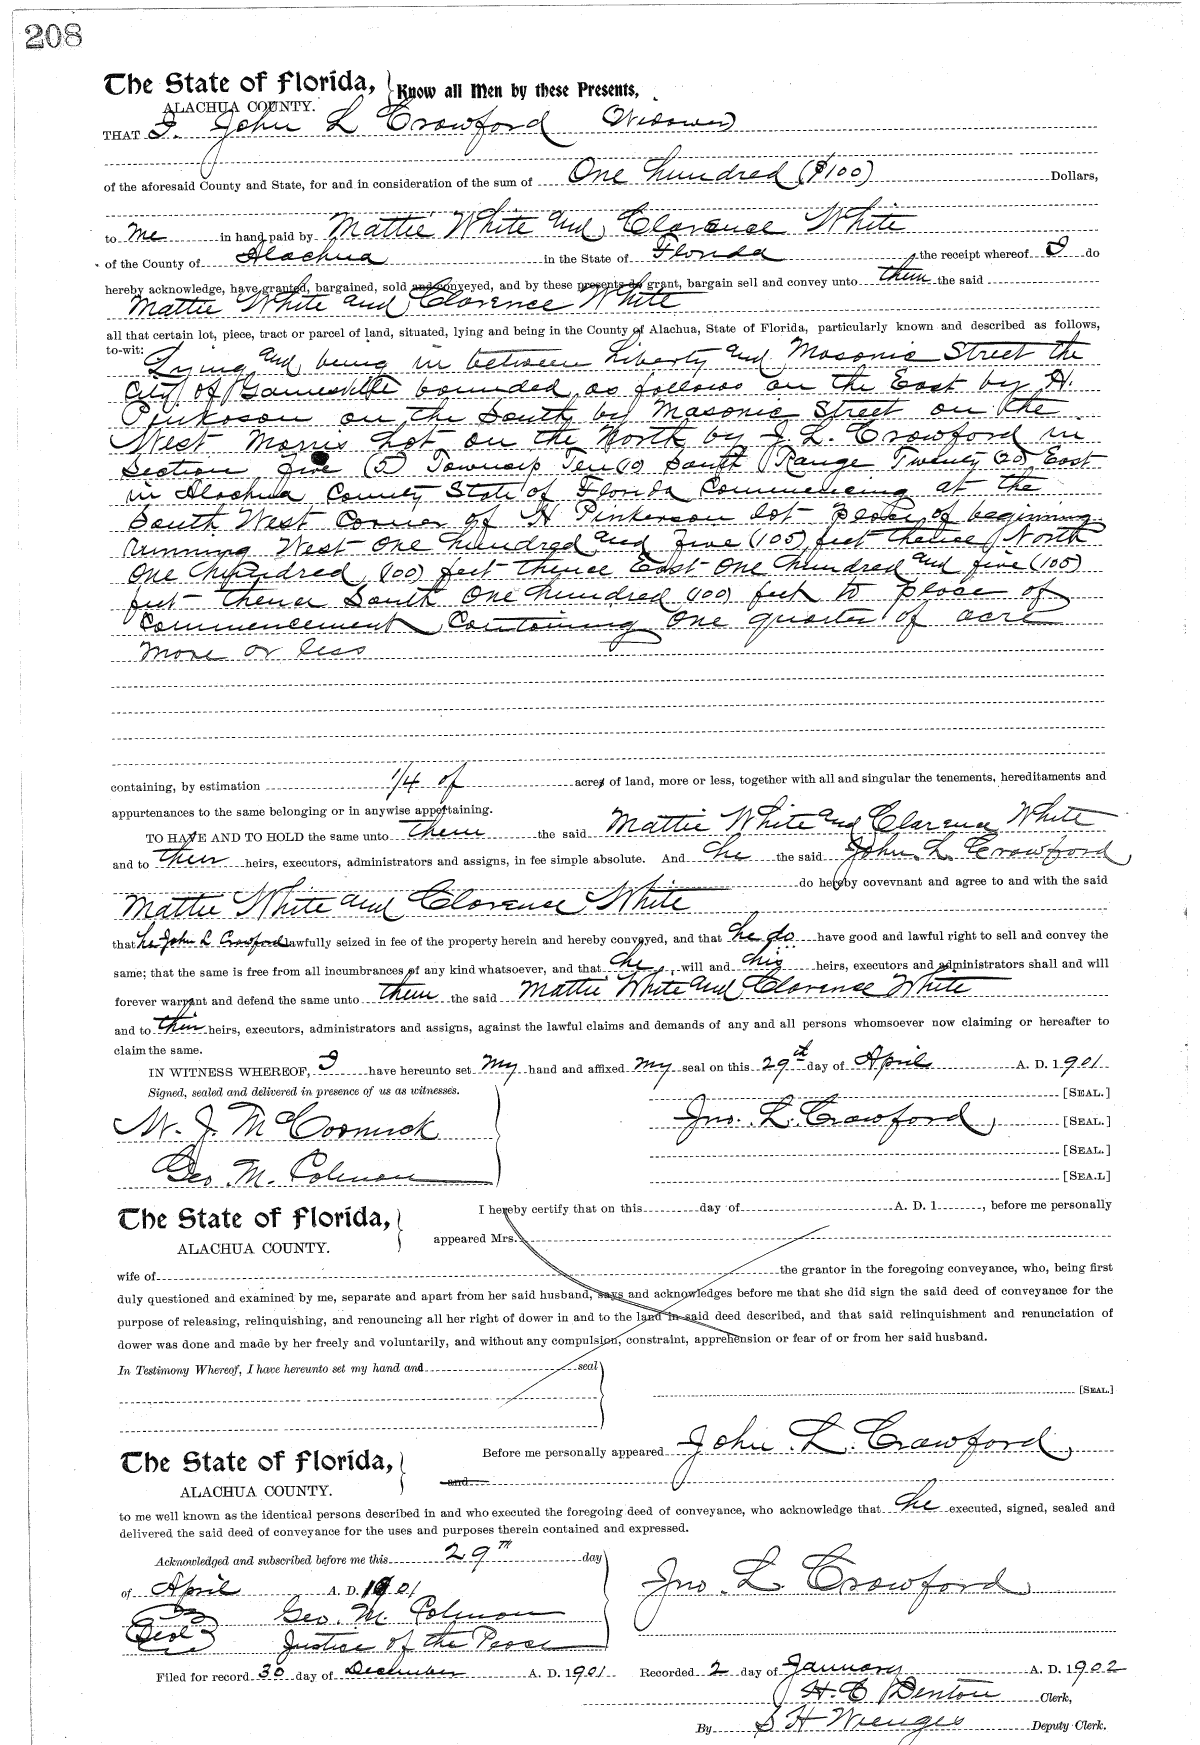 208
The State of Florida, Know all Men by these Presents,
ALACHUA COUNTY.
THAT I. John L Crawford (Widower)
of the aforesaid County and State, for and in consideration of the sum of One hundred ($100) Dollars,
to me in hand paid by Mattie White and Clarence White
of the County of Alachua in the State of Florida the receipt whereof I do
hereby acknowledge, have granted, bargained, sold and conveyed, and by these presents do grant, bargain sell and convey unto them the said
Mattie White and Clarence White
all that certain lot, piece, tract or parcel of land, situated, lying and being in the County of Alachua, State of Florida, particularly known and described as follows,
to-wit: Lying and being in between Liberty and Masonic Street the
City of Gainesville bounded as follows on the East by H.
Pinkoson on the South by Masonic Street on the
West Morris Lot on the North by J. L. Crawford in
Section five (5) Township Ten (10 South Range Twenty (20) East
in Alachua County State of Florida Commencing at the
South West Corner of H Pinkerson lot place of beginning
running West one hundred and five (105) feet thence North
one hundred (100) feet thence East one hundred and five (105)
feet thence South one hundred (100) feet to place of
Commencement Containing one quarter of acre
more or less
containing, by estimation 1/4 of acres of land, more or less, together with all and singular the tenements, hereditaments and
appurtenances to the same belonging or in anywise appertaining.
TO HAVE AND TO HOLD the same unto them the said Mattie White and Clarence White
and to their heirs, executors, administrators and assigns, in fee simple absolute. And he the said John. L. Crawford
do hereby covevnant and agree to and with the said
Mattie White and Clarence White
that he John L Crawford lawfully seized in fee of the property herein and hereby conveyed, and that he do have good and lawful right to sell and convey the
same; that the same is free from all incumbrances of any kind whatsoever, and that he will and his heirs, executors and administrators shall and will
forever warrant and defend the same unto them the said Mattie White and Clarence White
and to their heirs, executors, administrators and assigns, against the lawful claims and demands of any and all persons whomsoever now claiming or hereafter to
claim the same.
IN WITNESS WHEREOF, I have hereunto set my hand and affixed my seal on this 29th day of April A. D. 1901
Signed, sealed and delivered in presence of us as witnesses. [SEAL.]
W. J. McCormick Jno. L. Crawford, [SEAL.]
[SEAL.]
Geo. M. Colman [SEA.L]
The State of Florida, I hereby certify that on this day of A. D. 1 , before me personally
ALACHUA COUNTY. appeared Mrs.
wife of the grantor in the foregoing conveyance, who, being first
duly questioned and examined by me, separate and apart from her said husband, says and acknowledges before me that she did sign the said deed of conveyance for the
purpose of releasing, relinquishing, and renouncing all her right of dower in and to the land in said deed described, and that said relinquishment and renunciation of
dower was done and made by her freely and voluntarily, and without any compulsion, constraint, apprehension or fear of or from her said husband.
In Testimony Whereof, I have hereunto set my hand and seal
[SEAL.]
The State of Florida, Before me personally appeared John. L. Crawford,
ALACHUA COUNTY. and
to me well known as the identical persons described in and who executed the foregoing deed of conveyance, who acknowledge that he executed, signed, sealed and
delivered the said deed of conveyance for the uses and purposes therein contained and expressed.
Acknowledged and subscribed before me this 29th day
of April A. D. 1901 Jno. L. Crawford
Seal Geo. M. Colman
Justice of the Peace
Filed for record 30 day of December A. D. 1901 Recorded 2 day of January A. D. 1902
H. C Denton Clerk,
By S H Wienges Deputy Clerk.